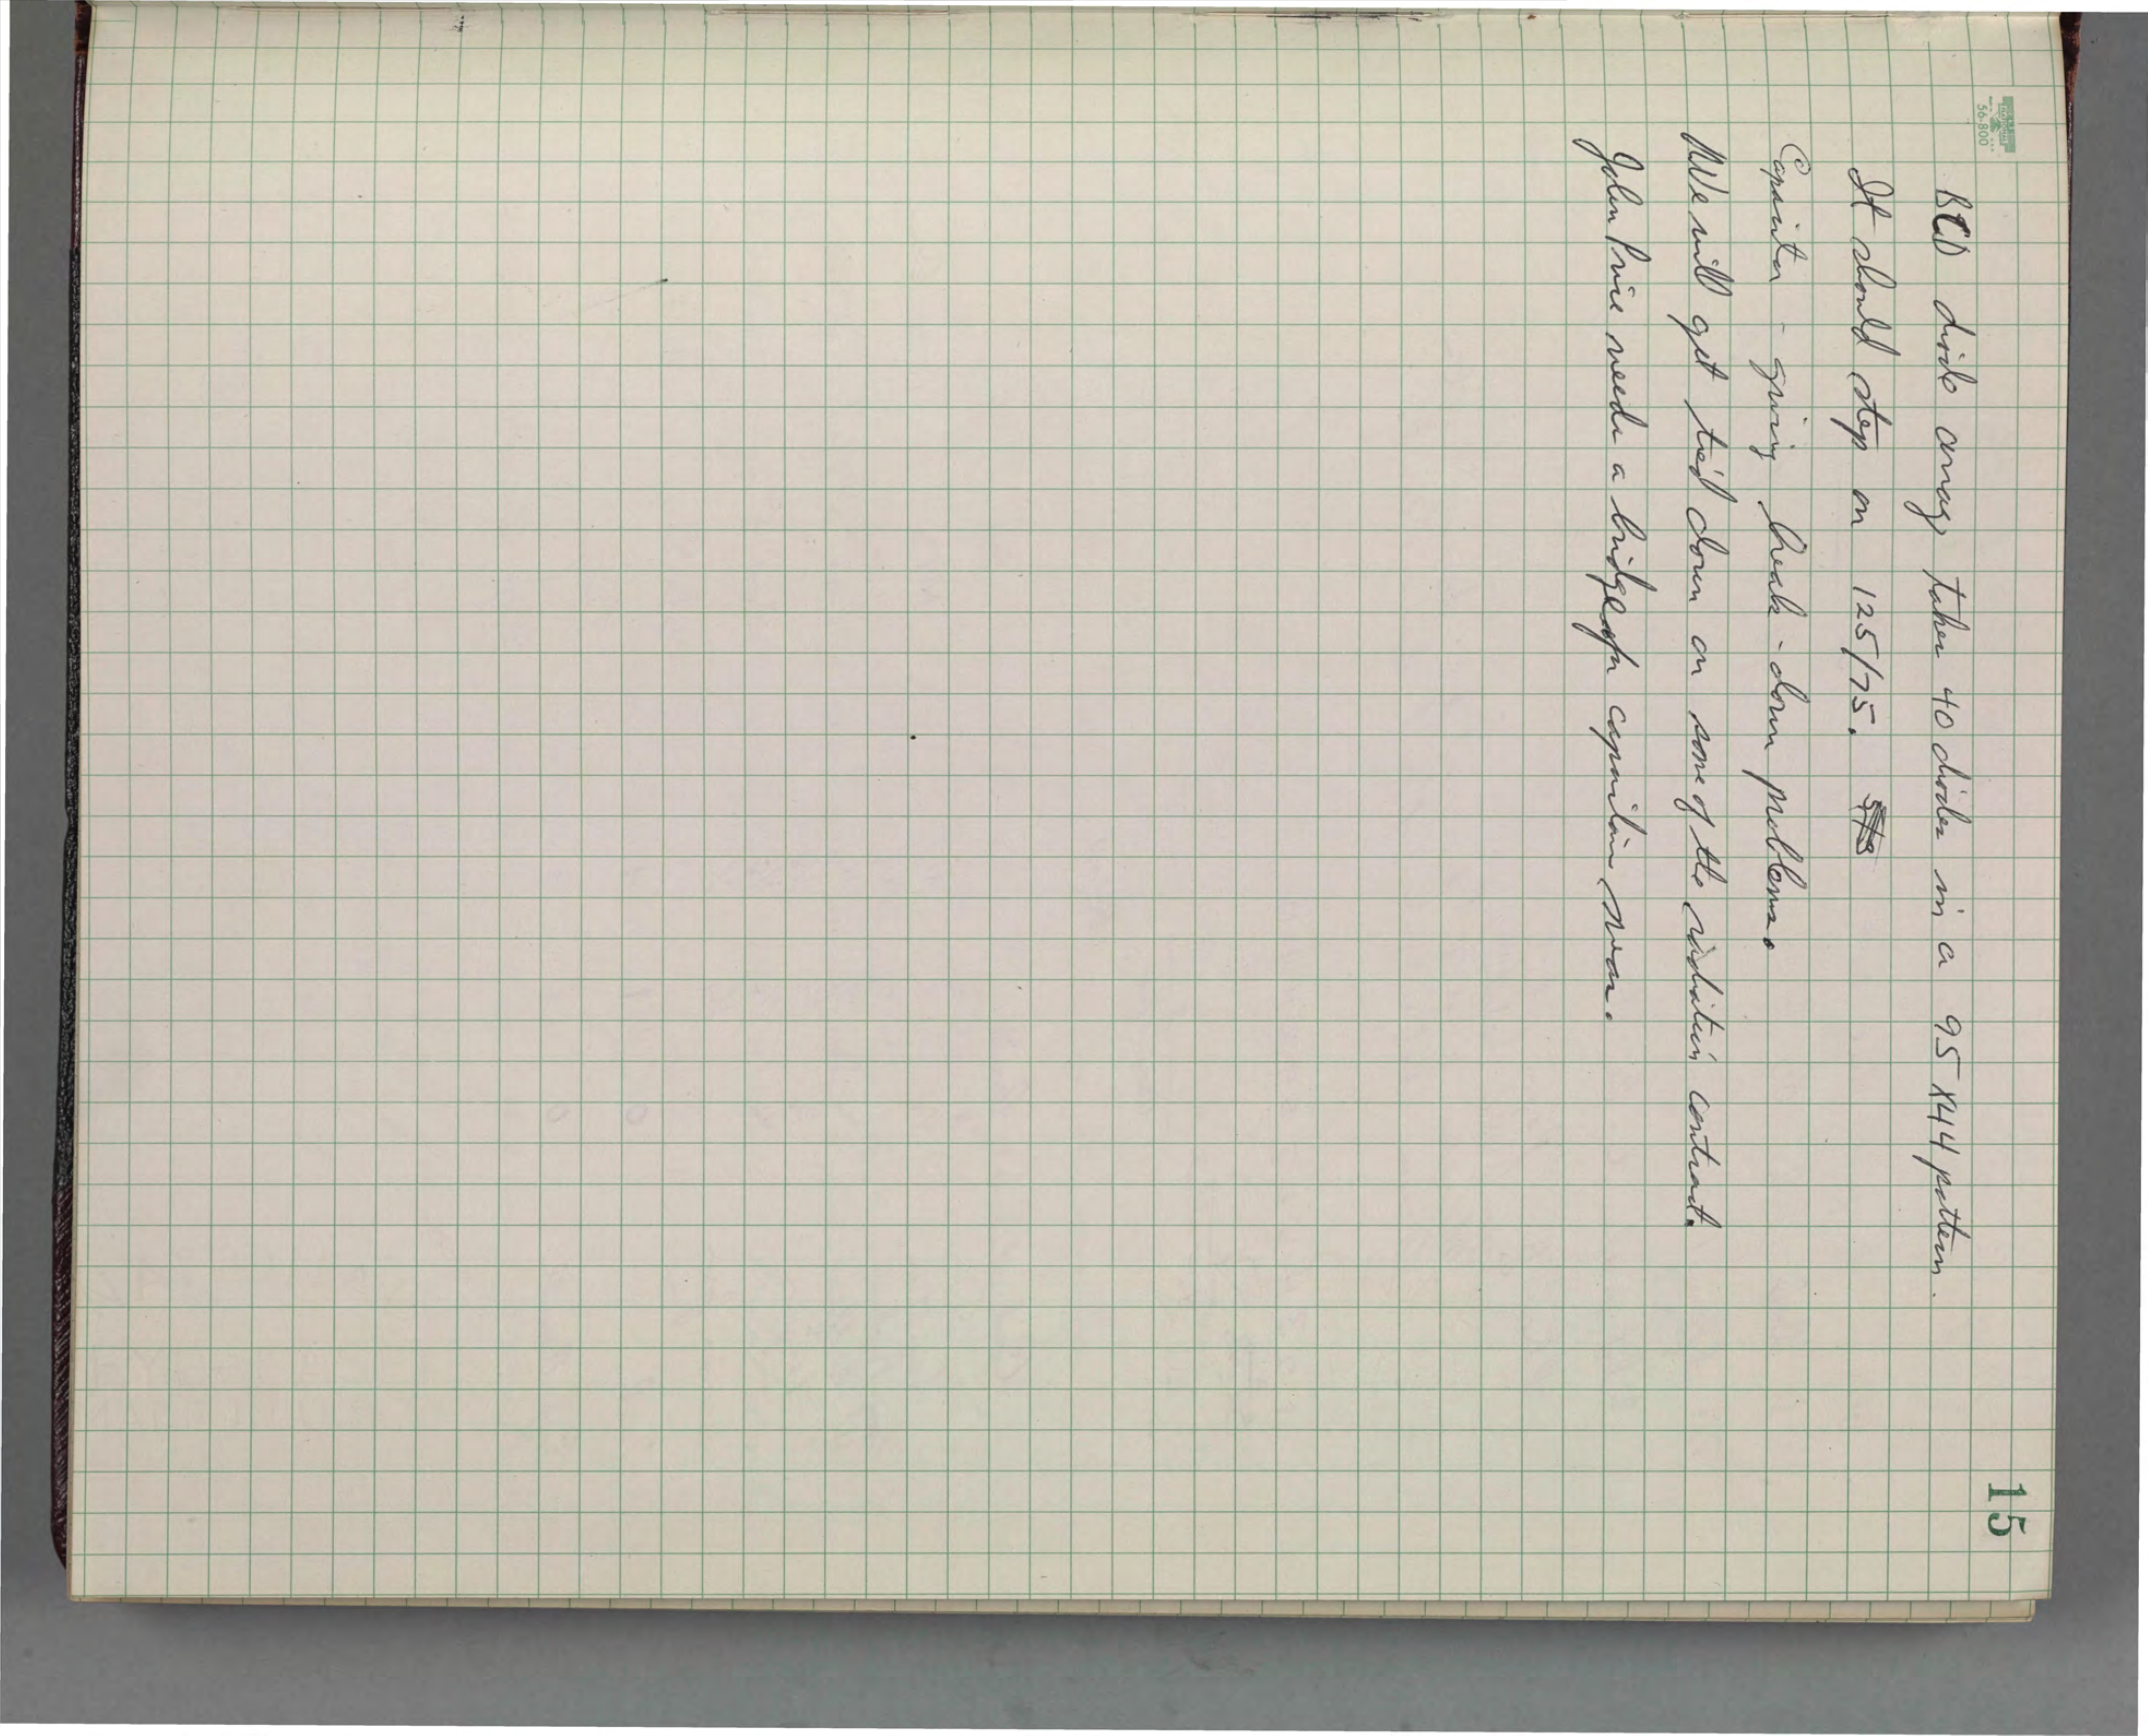 15
56-800
BCD diode array takes 40 diodes in a 95 X 44 pattern.
It should step on 125/75.
Capacitor - giving break-down problems.
We will get tied down on some of the radiation contract.
John Price needs a bridge for capacitive meas.